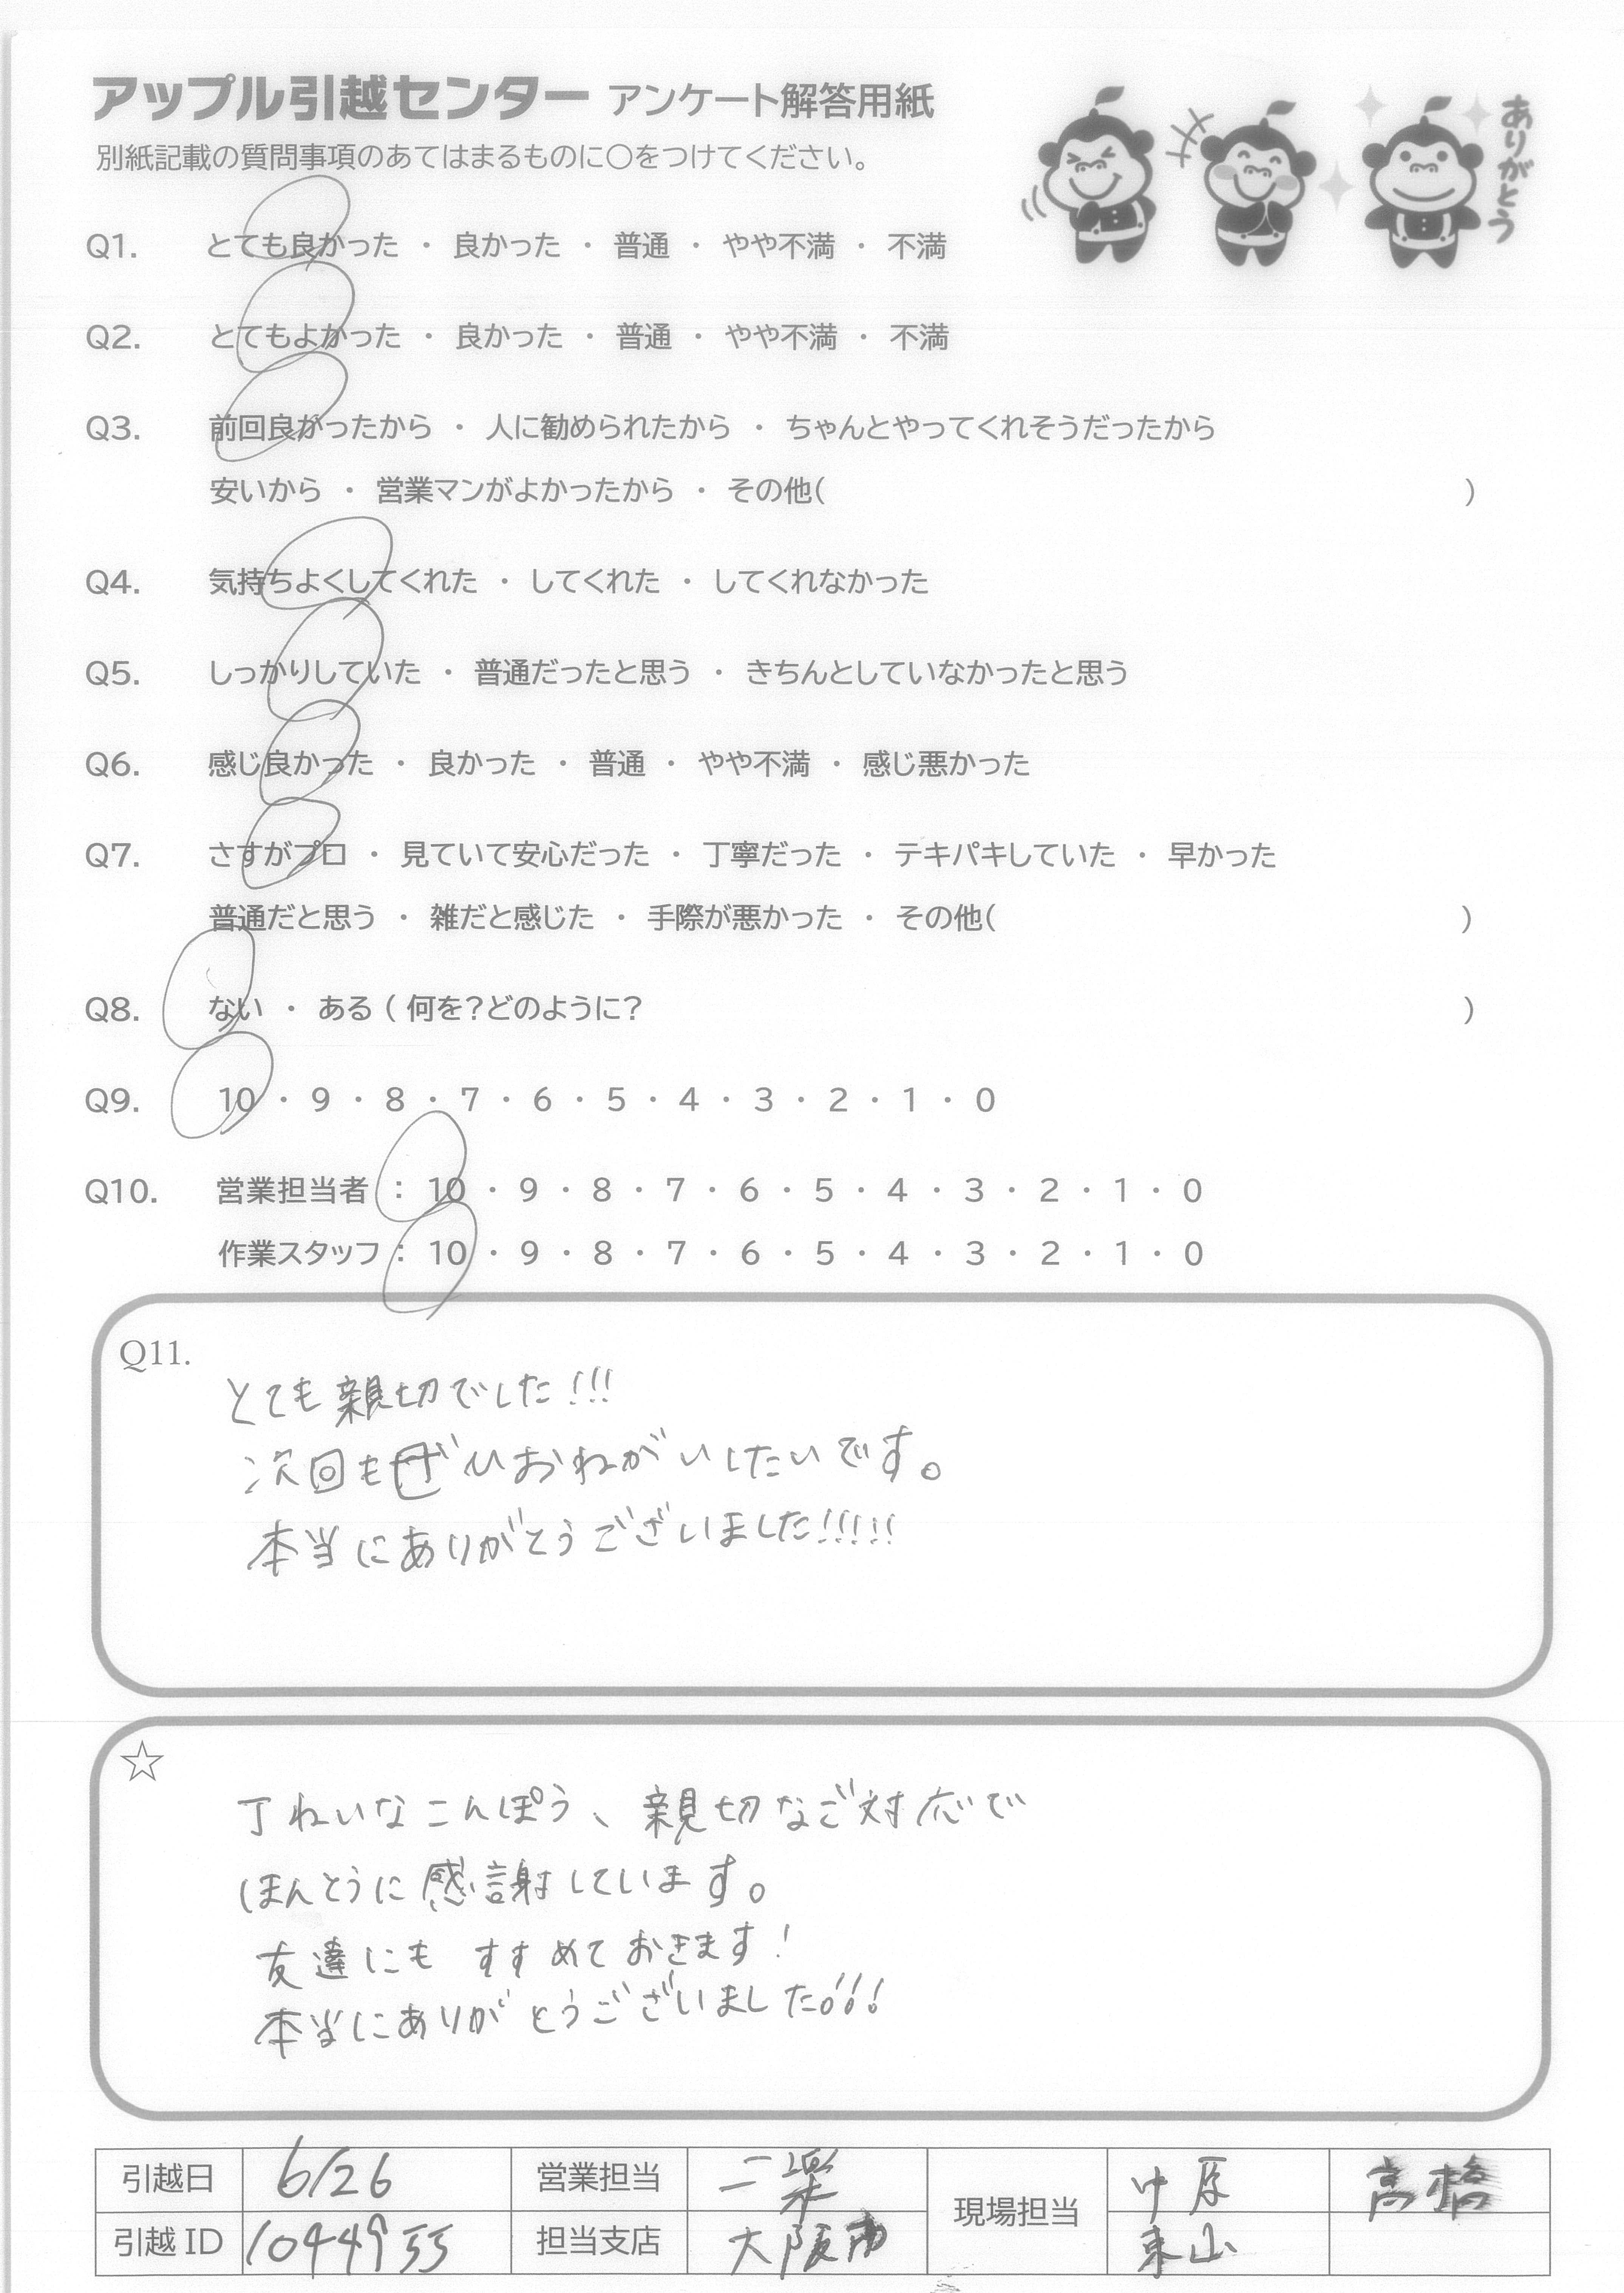 アップル引越センター アンケート解答用紙
別紙記載の質問事項のあてはまるものに○をつけてください。
ありがとう
Q1. とても良かった ・ 良かった ・ 普通 ・ やや不満 ・ 不満
Q2. とてもよかった ・ 良かった ・ 普通 ・ やや不満 ・ 不満
Q3. 前回良かったから ・ 人に勧められたから ・ ちゃんとやってくれそうだったから
安いから ・ 営業マンがよかったから ・ その他( )
Q4. 気持ちよくしてくれた ・ してくれた ・ してくれなかった
Q5. しっかりしていた ・ 普通だったと思う ・ きちんとしていなかったと思う
Q6. 感じ良かった ・ 良かった ・ 普通 ・ やや不満 ・ 感じ悪かった
Q7. さすがプロ ・ 見ていて安心だった ・ 丁寧だった ・ テキパキしていた ・ 早かった
普通だと思う ・ 雑だと感じた ・ 手際が悪かった ・ その他( )
Q8. ない ・ ある ( 何を?どのように? )
Q9. 10 ・ 9 ・ 8 ・ 7 ・ 6 ・ 5 ・ 4 ・ 3 ・ 2 ・ 1 ・ 0
Q10. 営業担当者 : 10 ・ 9 ・ 8 ・ 7 ・ 6 ・ 5 ・ 4 ・ 3 ・ 2 ・ 1 ・ 0
作業スタッフ : 10 ・ 9 ・ 8 ・ 7 ・ 6 ・ 5 ・ 4 ・ 3 ・ 2 ・ 1 ・ 0
Q11.
とても親切でした!!!
次回もぜひおねがいしたいです。
本当にありがとうございました!!!!!
☆
丁ねいなこんぽう、親切なご対応で
ほんとうに感謝しています。
友達にも すすめておきます!
本当にありがとうございました!!!
引越日 6/26 営業担当 現場担当 中原 高橋
引越ID 1044955 担当支店 大阪南 東山